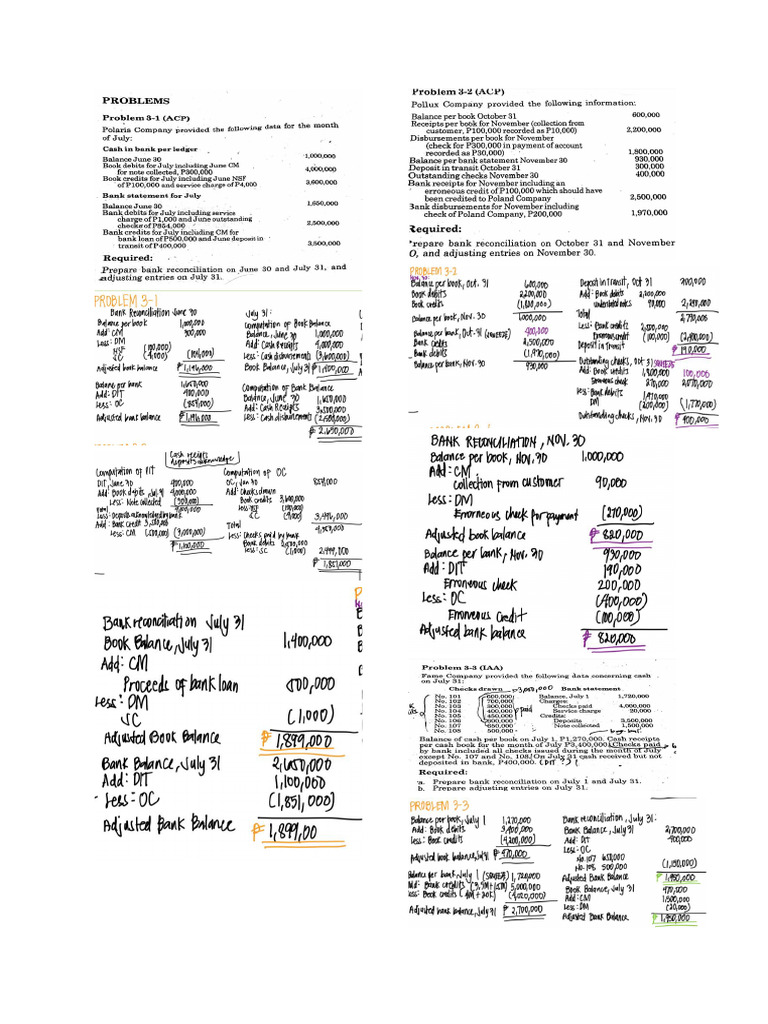 PROBLEMS
Problem 3-1 (ACP)
Polaris Company provided the following data for the month
of July:
Cash in bank per ledger
Balance June 30 1,000,000
Book debits for July including June CM
for note collected, P300,000 4,000,000
Book credits for July including June NSF
of P100,000 and service charge of P4,000 3,600,000
Bank statement for July
Balance June 30 1,650,000
Bank debits for July including service
charge of P1,000 and June outstanding
checks of P854,000 2,500,000
Bank credits for July including CM for
bank loan of P500,000 and June deposit in
transit of P400,000 3,500,000
Required:
Prepare bank reconciliation on June 30 and July 31, and
adjusting entries on July 31.
PROBLEM 3-1
Bank Reconciliation June 30
Balance per book 1,000,000
Add: CM 300,000
Less: DM
NSF (100,000)
SC (4,000) (104,000)
Adjusted book balance ₱1,196,000
Balance per bank 1,650,000
Add: DIT 400,000
Less: OC (854,000)
Adjusted bank balance ₱1,196,000
July 31:
Computation of Book Balance
Balance, June 30 1,000,000
Add: Cash Receipts 4,000,000
Less: Cash disbursements (3,600,000)
Book Balance, July 31 ₱1,400,000
Computation of Bank Balance
Balance, June 30 1,650,000
Add: Cash Receipts 3,500,000
Less: Cash disbursements (2,500,000)
₱ 2,650,000
Cash receipts
deposits acknowledge
Computation of DIT
DIT, June 30 400,000
Add: Book debits, July 31 4,000,000
Less: Note collected (300,000)
Total
Less: Deposits acknowledged by bank
Add: Bank credit 3,500,000
Less: CM (500,000) (3,000,000)
₱1,100,000
Computation of OC
OC, Jun 30 854,000
Add: Checks drawn
Book credits 3,600,000
Less: NSF (100,000)
SC (4,000) 3,496,000
Total 4,350,000
Less: Checks paid by bank
Bank debits 2,500,000
Less: SC (1,000) 2,499,000
₱ 1,851,000
Bank reconciliation July 31
Book Balance, July 31 1,400,000
Add: CM
Proceeds of bank loan 500,000
Less: DM
SC (1,000)
Adjusted Book Balance ₱ 1,899,000
Bank Balance, July 31 2,650,000
Add: DIT 1,100,000
Less: OC (1,851,000)
Adjusted Bank Balance ₱ 1,899,00
Problem 3-2 (ACP)
Pollux Company provided the following information:
Balance per book October 31 600,000
Receipts per book for November (collection from
customer, P100,000 recorded as P10,000) 2,200,000
Disbursements per book for November
(check for P300,000 in payment of account
recorded as P30,000) 1,800,000
Balance per bank statement November 30 930,000
Deposit in transit October 31 300,000
Outstanding checks November 30 400,000
Bank receipts for November including an
erroneous credit of P100,000 which should have
been credited to Poland Company 2,500,000
Bank disbursements for November including
check of Poland Company, P200,000 1,970,000
Required:
Prepare bank reconciliation on October 31 and November
O, and adjusting entries on November 30.
PROBLEM 3-2
Balance per book, Oct. 31 600,000
Book debits 2,200,000
Book credits (1,800,000)
Balance per book, Nov. 30 1,000,000
Balance per bank, Oct. 31 (SQUEEZE) 400,000
Bank credits 2,500,000
Bank debits (1,970,000)
Balance per book, Nov. 30 930,000
Deposit in transit, Oct 31 300,000
Add: Book debits 2,200,000
understated notes 90,000 2,290,000
Total
Less: Bank credits 2,500,000
Erroneous credit (100,000) (2,400,000)
Deposit in transit ₱190,000
Outstanding checks, Oct 31 SQUEEZE 100,000
Add: Book credits 1,800,000
Erroneous check 270,000 2,070,000
Less: Bank debits 1,970,000
DM (200,000) (1,770,000)
Outstanding checks, Nov. 30 ₱ 400,000
BANK RECONCILIATION, NOV. 30
Balance per book, Nov. 30 1,000,000
Add: CM
Collection from customer 90,000
Less: DM
Erroneous check for payment (270,000)
Adjusted book balance ₱ 820,000
Balance per bank, Nov. 30 930,000
Add: DIT 190,000
Erroneous check 200,000
Less: OC (400,000)
Erroneous Credit (100,000)
Adjusted bank balance ₱ 820,000
Problem 3-3 (IAA)
Fame Company provided the following data concerning cash
on July 31:
Checks drawn Bank statement
No. 101 600,000 Balance, July 1 1,720,000
No. 102 700,000 Charges:
No. 103 300,000 Checks paid 4,000,000
No. 104 400,000 paid Service charge 20,000
No. 105 450,000 Credits:
No. 106 600,000 Deposits 3,500,000
No. 107 650,000 Note collected 1,500,000
No. 108 500,000
Balance of cash per book on July 1, P1,270,000. Cash receipts
per cash book for the month of July P3,400,000. Checks paid
by bank included all checks issued during the month of July
except No. 107 and No. 108. On July 31 cash received but not
deposited in bank, P400,000. (DIT)
Required:
a. Prepare bank reconciliation on July 1 and July 31.
b. Prepare adjusting entries on July 31.
PROBLEM 3-3
Balance per book, July 1 1,270,000
Add: Book debits 3,400,000
Less: Book credits (4,200,000)
Adjusted book balance, July 31 ₱ 470,000
Balance per bank, July 1 (SQUEEZE) 1,720,000
Add: Bank credits (3.5M + 1.5M) 5,000,000
Less: Book credits (4M + 20K) (4,020,000)
Adjusted bank balance, July 31 ₱ 2,700,000
Bank reconciliation, July 31:
Bank Balance, July 31 2,700,000
Add: DIT 400,000
Less: OC
No. 107 650,000
No. 108 500,000 (1,150,000)
Adjusted Bank Balance ₱1,950,000
Book Balance, July 31 470,000
Add: CM 1,500,000
Less: DM (20,000)
Adjusted Bank Balance ₱1,950,000